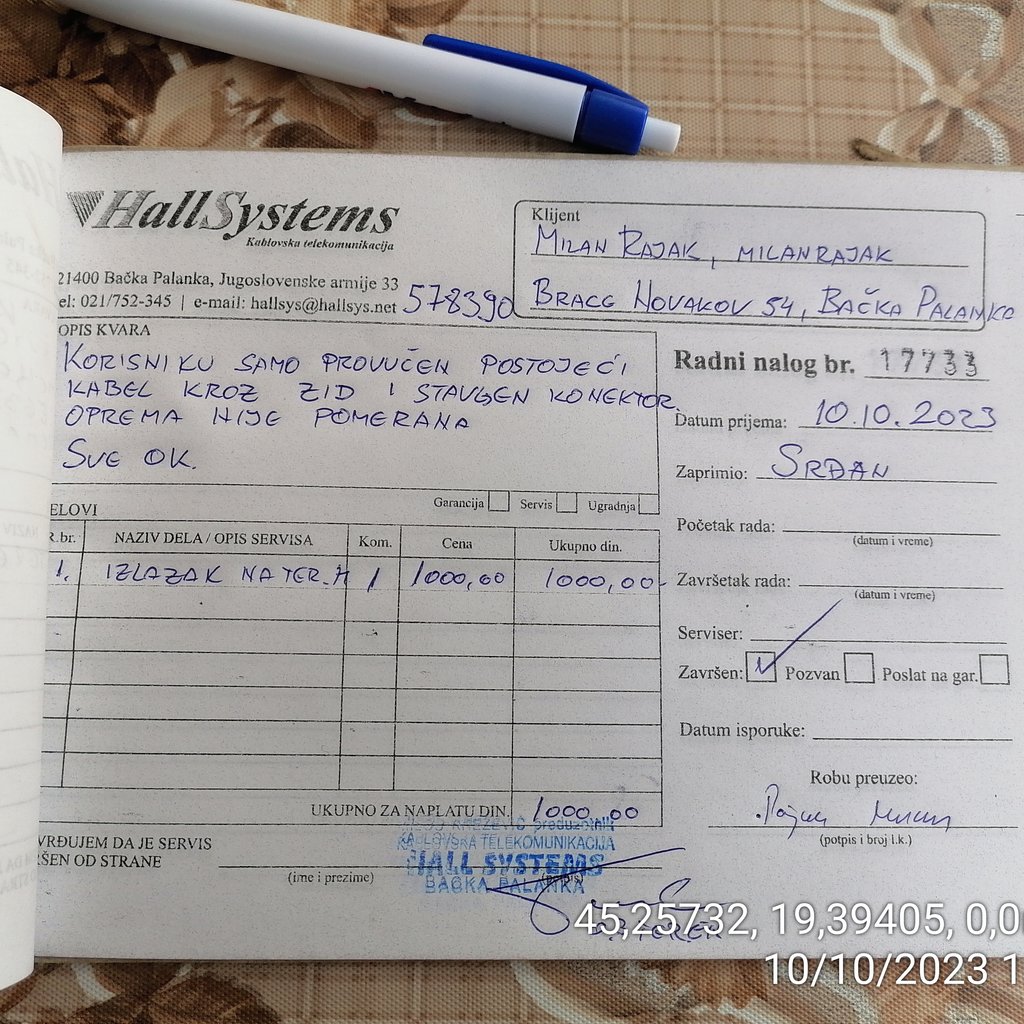 HallSystems
Kablovska telekomunikacija
21400 Bačka Palanka, Jugoslovenske armije 33
el: 021/752-345 | e-mail: hallsys@hallsys.net
578390
Klijent
MILAN RAJAK, MILANRAJAK
BRACE NOVAKOV 54, BAČKA PALANKA
OPIS KVARA
KORISNIKU SAMO PROVUČEN POSTOJEĆI
KABEL KROZ ZID I STAVLJEN KONEKTOR.
OPREMA NIJE POMERANA
SVE OK.
Radni nalog br. 17733
Datum prijema: 10.10.2023
Zaprimio: SRĐAN
Početak rada:
(datum i vreme)
Završetak rada:
(datum i vreme)
Serviser:
Završen: Pozvan Poslat na gar.
Datum isporuke:
Robu preuzeo:
(potpis i broj l.k.)
Garancija Servis Ugradnja
ELOVI
R.br. NAZIV DELA / OPIS SERVISA Kom. Cena Ukupno din.
1. IZLAZAK NA TER. 1 1000,00 1000,00
UKUPNO ZA NAPLATU DIN. 1000,00
VRĐUJEM DA JE SERVIS
ŠEN OD STRANE
(ime i prezime)
(potpis)
preduzetnik
KABLOVSKA TELEKOMUNIKACIJA
HALL SYSTEMS
BAČKA PALANKA
45,25732, 19,39405, 0,0
10/10/2023 1